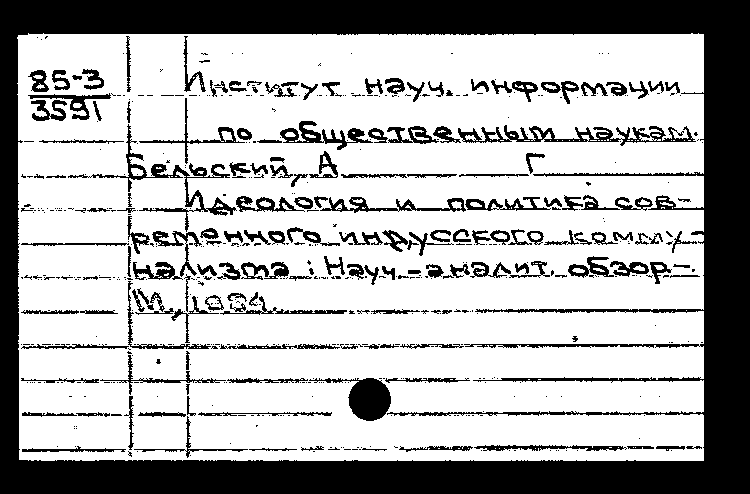 85-3
3591
Институт науч. информации
по общественным наукам.
Бельский, А Г
Идеология и политика сов-
ременного индусского комму-
нализма : Науч.-аналит. обзор.-
М., 1984.